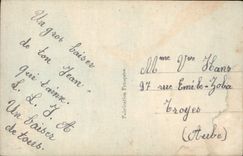 Un gros baiser
de ton Jean
qui t'aime.
L. L. J. A
Un baiser
de tous.
Fabrication Française
Mme Vve Hans
27 rue Emile-Zola
Troyes
(Aube)